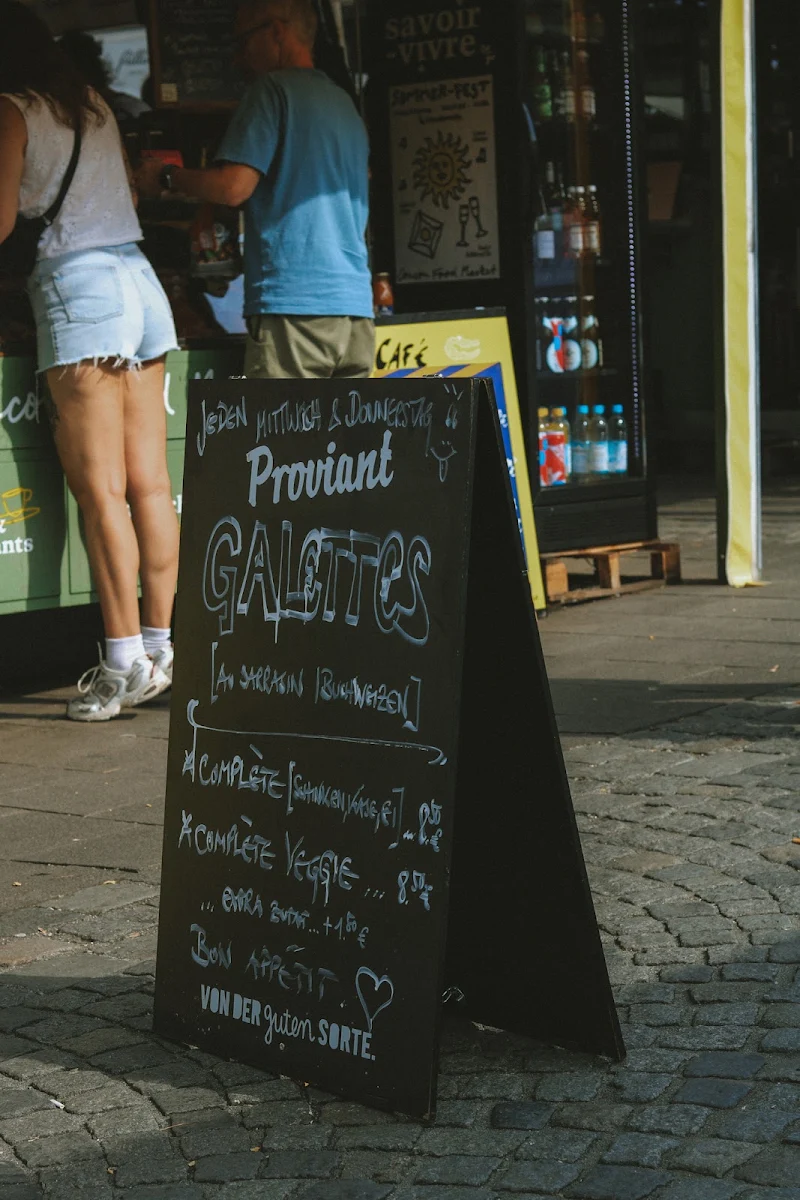 savoir
vivre
SOMMER-FEST
Food Market
CAFÉ
JEDEN MITTWOCH & DONNERSTAG
Proviant
GALETTES
[AU SARRASIN | BUCHWEIZEN]
COMPLÈTE [SCHINKEN, KÄSE, EI] .. 8,50 €
COMPLÈTE VEGGIE ... 8,50 €
... EXTRA ZUTAT... +1.50 €
BON APPÉTIT
VON DER guten SORTE.